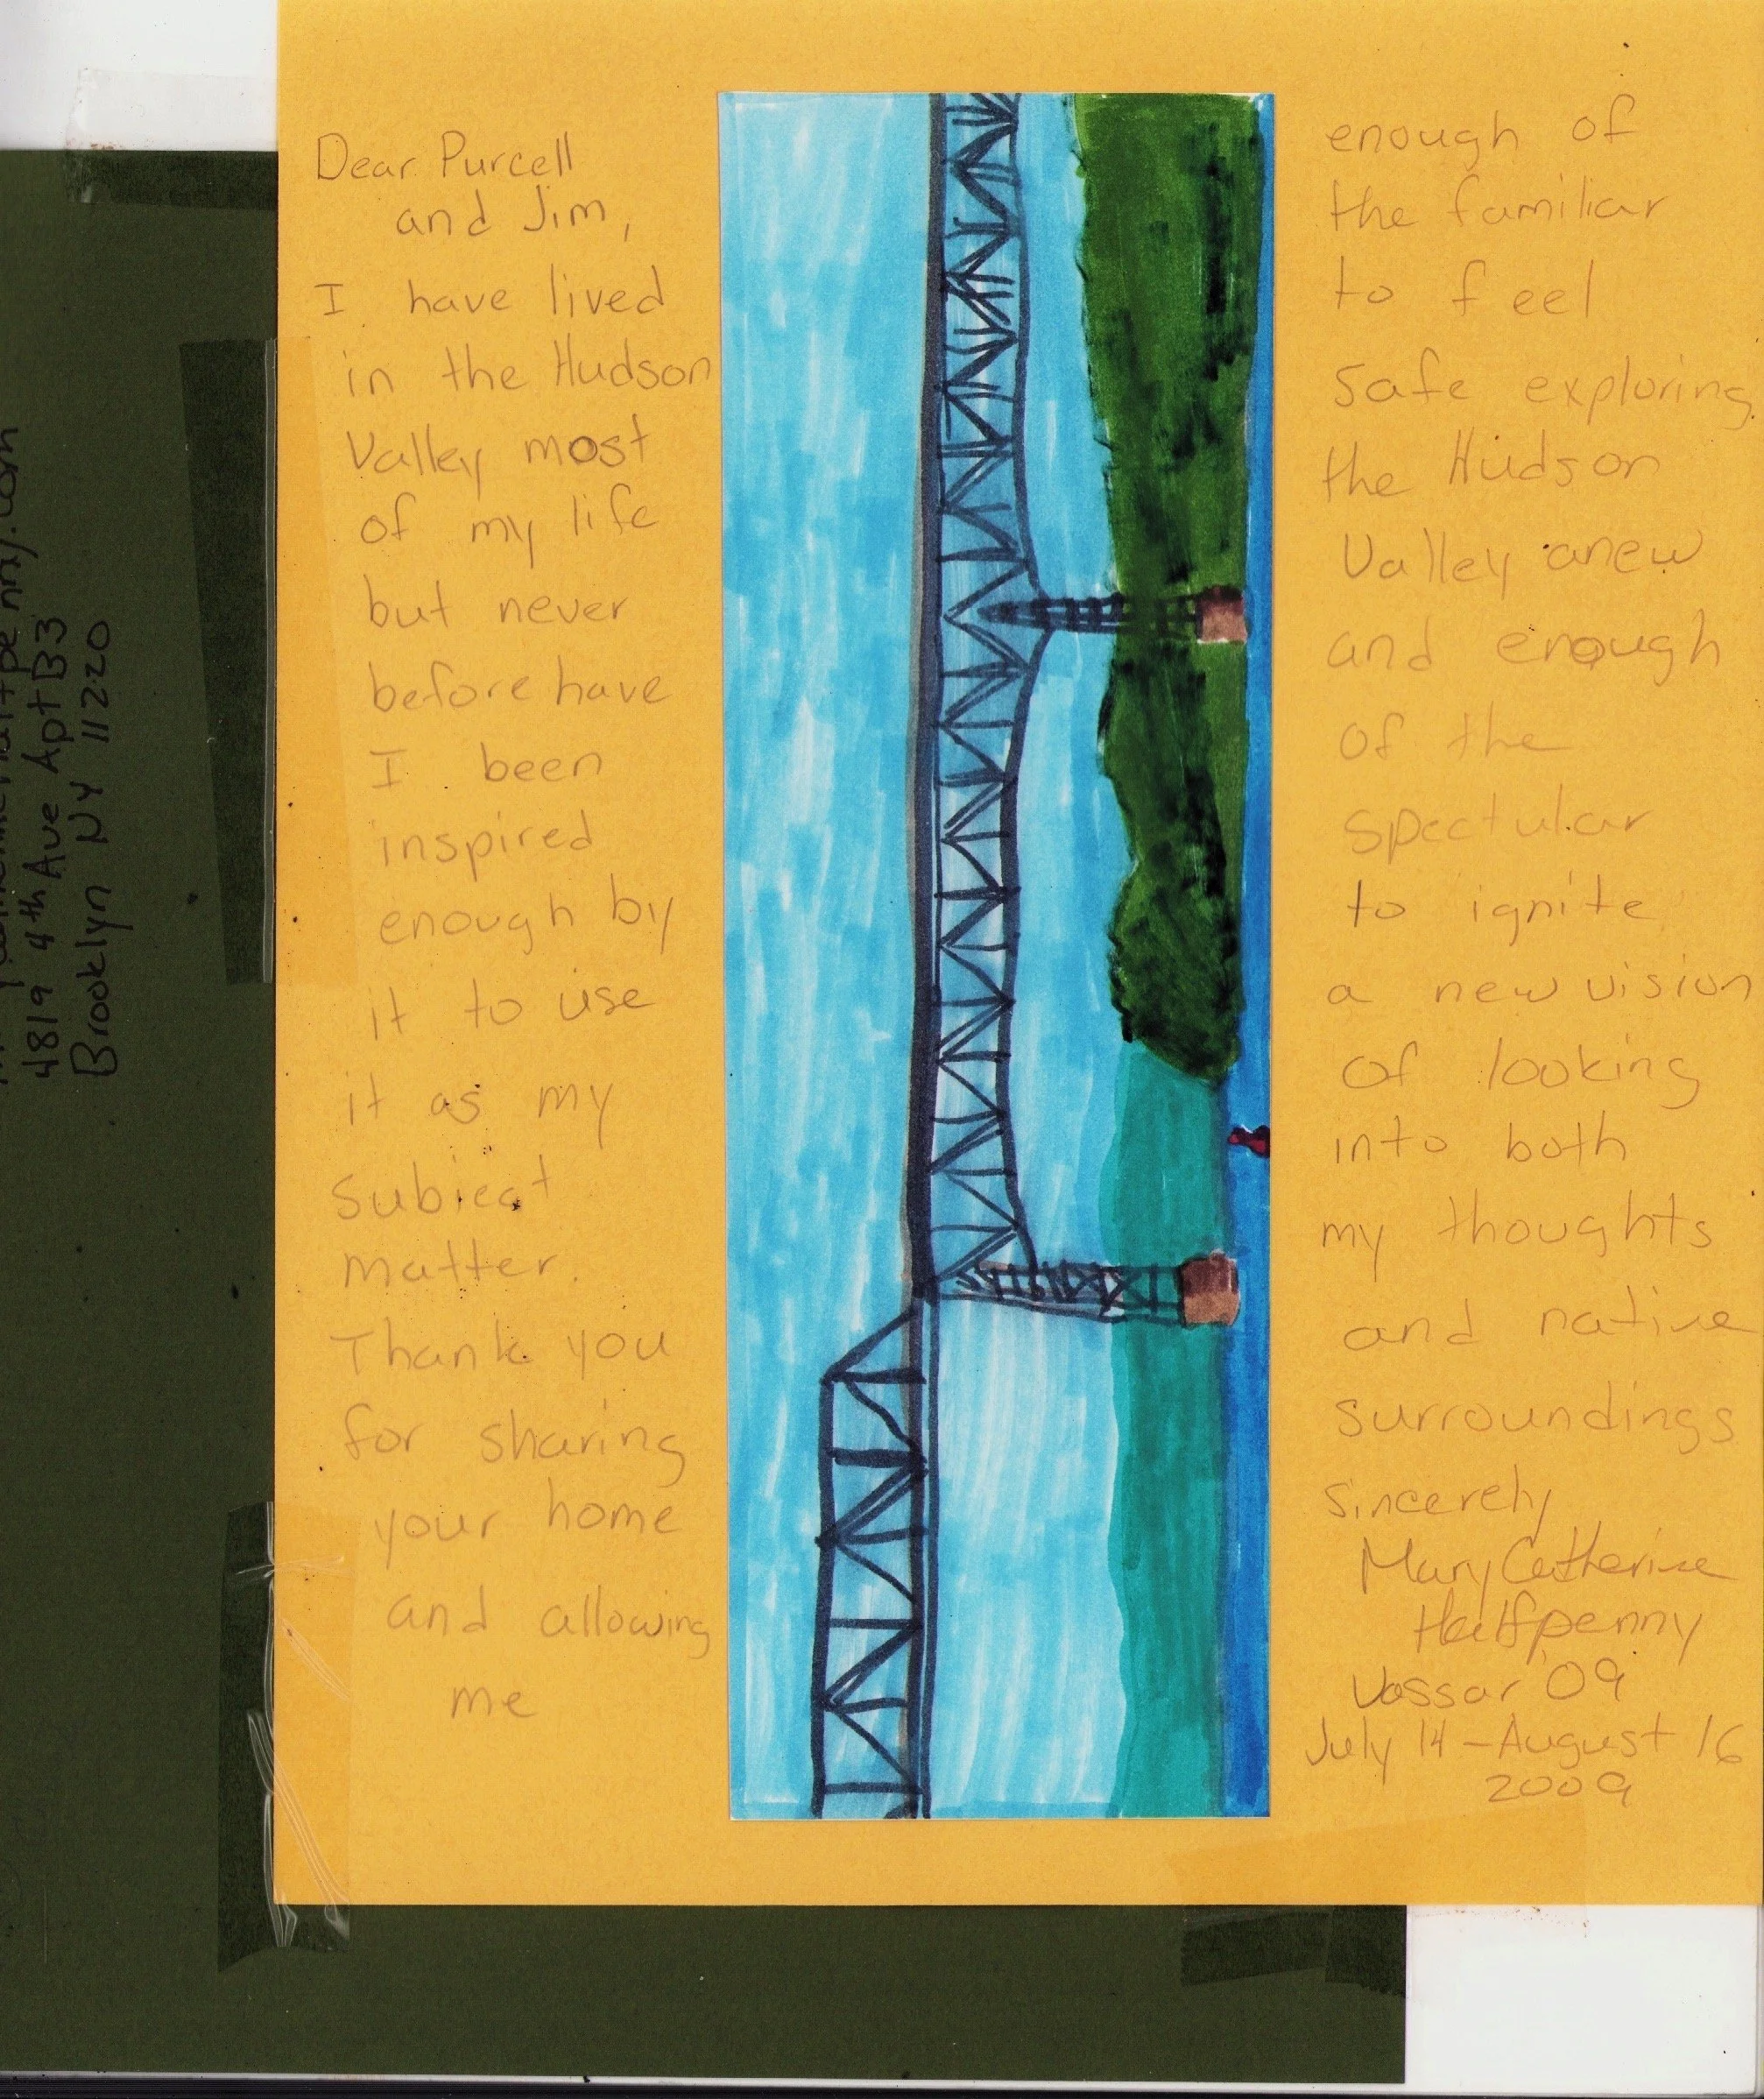 Dear Purcell
and Jim,
I have lived
in the Hudson
Valley most
of my life
but never
before have
I been
inspired
enough by
it to use
it as my
subject
matter.
Thank you
for sharing
your home
and allowing
me
enough of
the familiar
to feel
safe exploring
the Hudson
Valley anew
and enough
of the
spectular
to ignite
a new vision
of looking
into both
my thoughts
and native
surroundings
Sincerely
Mary Catherine
Halfpenny
Vassar '09
July 14 - August 16
2009
4819 4th Ave Apt B3
Brooklyn NY 11220